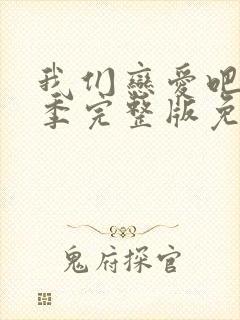 我们恋爱吧
季完整版免
鬼府探官